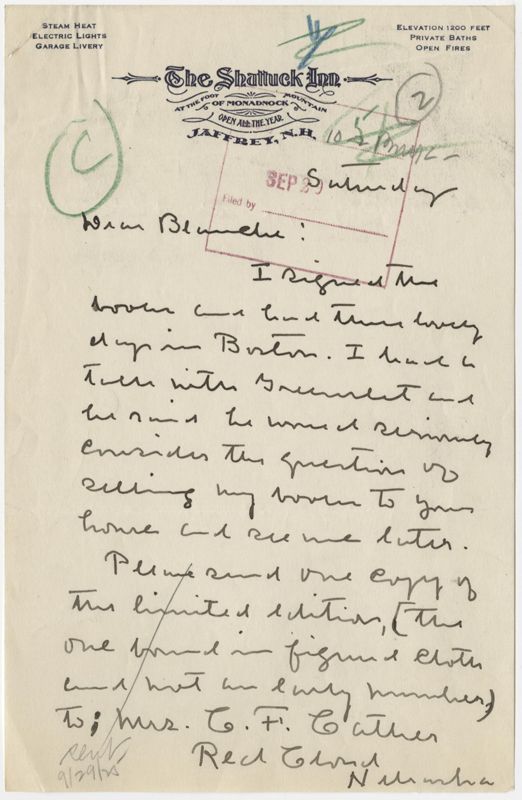 STEAM HEAT
ELECTRIC LIGHTS
GARAGE LIVERY
ELEVATION 1200 FEET
PRIVATE BATHS
OPEN FIRES
The Shattuck Inn
AT THE FOOT OF MONADNOCK MOUNTAIN
OPEN ALL THE YEAR
JAFFREY, N.H.
C
2
SEP 29
Filed by
Saturday
Dear Blanche:
I signed the
books and had three lovely
days in Boston. I had a
talk with Greenslet and
he said he would seriously
consider the question of
selling my books to your
house and see me later.
Please send one copy of
the limited edition, (the
one bound in figured cloth
and not an early number)
to; Mrs. C. F. Cather
Red Cloud
Nebraska
sent
9/29/25